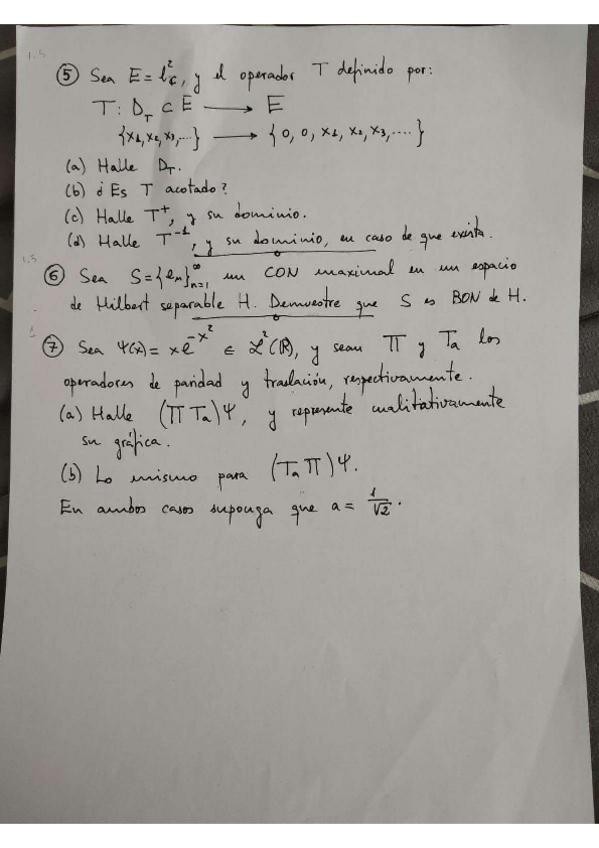 1.5
⑤ Sea E = l²_C, y el operador T definido por:
T: D_T ⊂ E ⟶ E
{x₁, x₂, x₃, ...} ⟶ {0, 0, x₁, x₂, x₃, ....}
(a) Halle D_T.
(b) ¿Es T acotado?
(c) Halle T⁺, y su dominio.
(d) Halle T⁻¹, y su dominio, en caso de que exista.
1.5
⑥ Sea S = {e_n}_{n=1}^∞ un CON maximal en un espacio
de Hilbert separable H. Demuestre que S es BON de H.
1
⑦ Sea Ψ(x) = x e^{-x²} ∈ L²(ℝ), y sean Π y T_a los
operadores de paridad y traslación, respectivamente.
(a) Halle (Π T_a)Ψ, y represente cualitativamente
su gráfica.
(b) Lo mismo para (T_a Π)Ψ.
En ambos casos suponga que a = 1/√2.